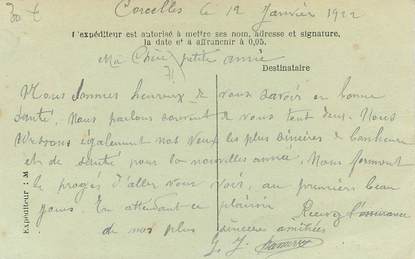 Corcelles le 12 Janvier 1922
L'expéditeur est autorisé à mettre ses nom, adresse et signature,
la date et à affranchir à 0,05.
Ma Chère petite amie
Destinataire
Nous sommes heureux de vous savoir en bonne
santé. Nous parlons souvent de vous tout deux. Nous
adressons également nos veux les plus sincères de bonheur
et de santé pour la nouvelles année. Nous formont
le projès d'aller vous voir, au premiers beau
jours. En attendant ce plaisir Recevez l'assurance
de nos plus sincères amitiées
Expéditeur : M